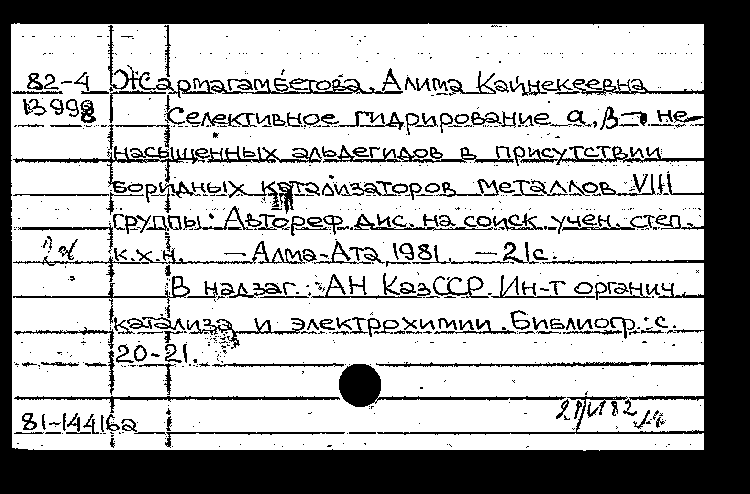 82-4 Жармагамбетова, Алима Кайнекеевна
13998 Селективное гидрирование α,β- не-
насыщенных альдегидов в присутствии
боридных катализаторов металлов VIII
группы: Автореф. дис. на соиск. учен. степ.
к.х.н. - Алма-Ата, 1981. - 21с.
В надзаг.: АН КазССР. Ин-т органич.
катализа и электрохимии. Библиогр.: с.
20-21.
81-14416а